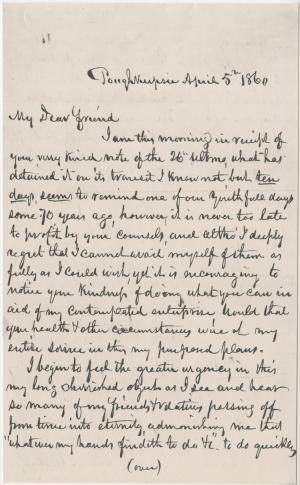 Poughkeepsie April 5th 1860
My Dear friend
I am this morning in receipt of
your very kind note of the 26th ultimo, what has
detained it on its transit I know not but ten
days, seems to remind one of our youthfull days
some 70 years ago, however it is never too late
to profit by your counsels, and altho' I deeply
regret that I cannot avail myself of them as
fully as I could wish yet it is encouraging to
notice your kindness of doing what you can in
aid of my contemplated enterprise would that
your health & other circumstances were at my
entire service in this my purposed plans.
I begin to feel the greater urgency in this
my long cherished object as I see and hear
so many of my friends & relatives passing off
from time into eternity, admonishing me that
"whatever my hands findeth to do &c" to do quickly
(over)